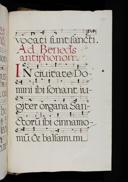 vocati sunt sancti.
Ad Bened9
antiphona.
IN ciuitate Do
mini ibi sonant iu
giter organa San
ctorū ibi cinnamo
mū et balsamum